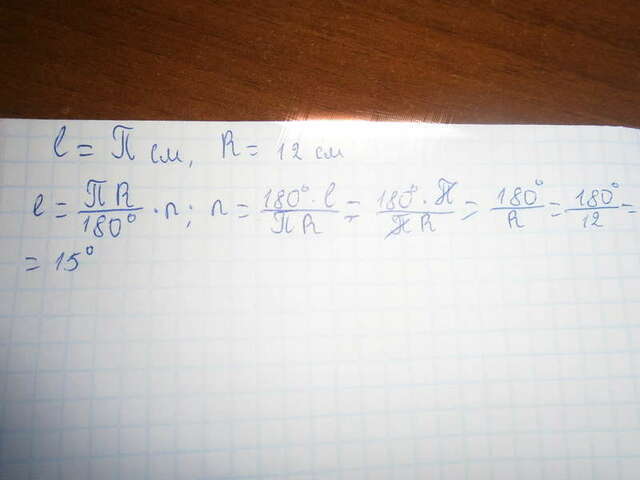 l = П см, R = 12 см
l = ПR/180° · n; n = 180° · l/ПR = 180° · П/ПR = 180°/R = 180°/12 =
= 15°